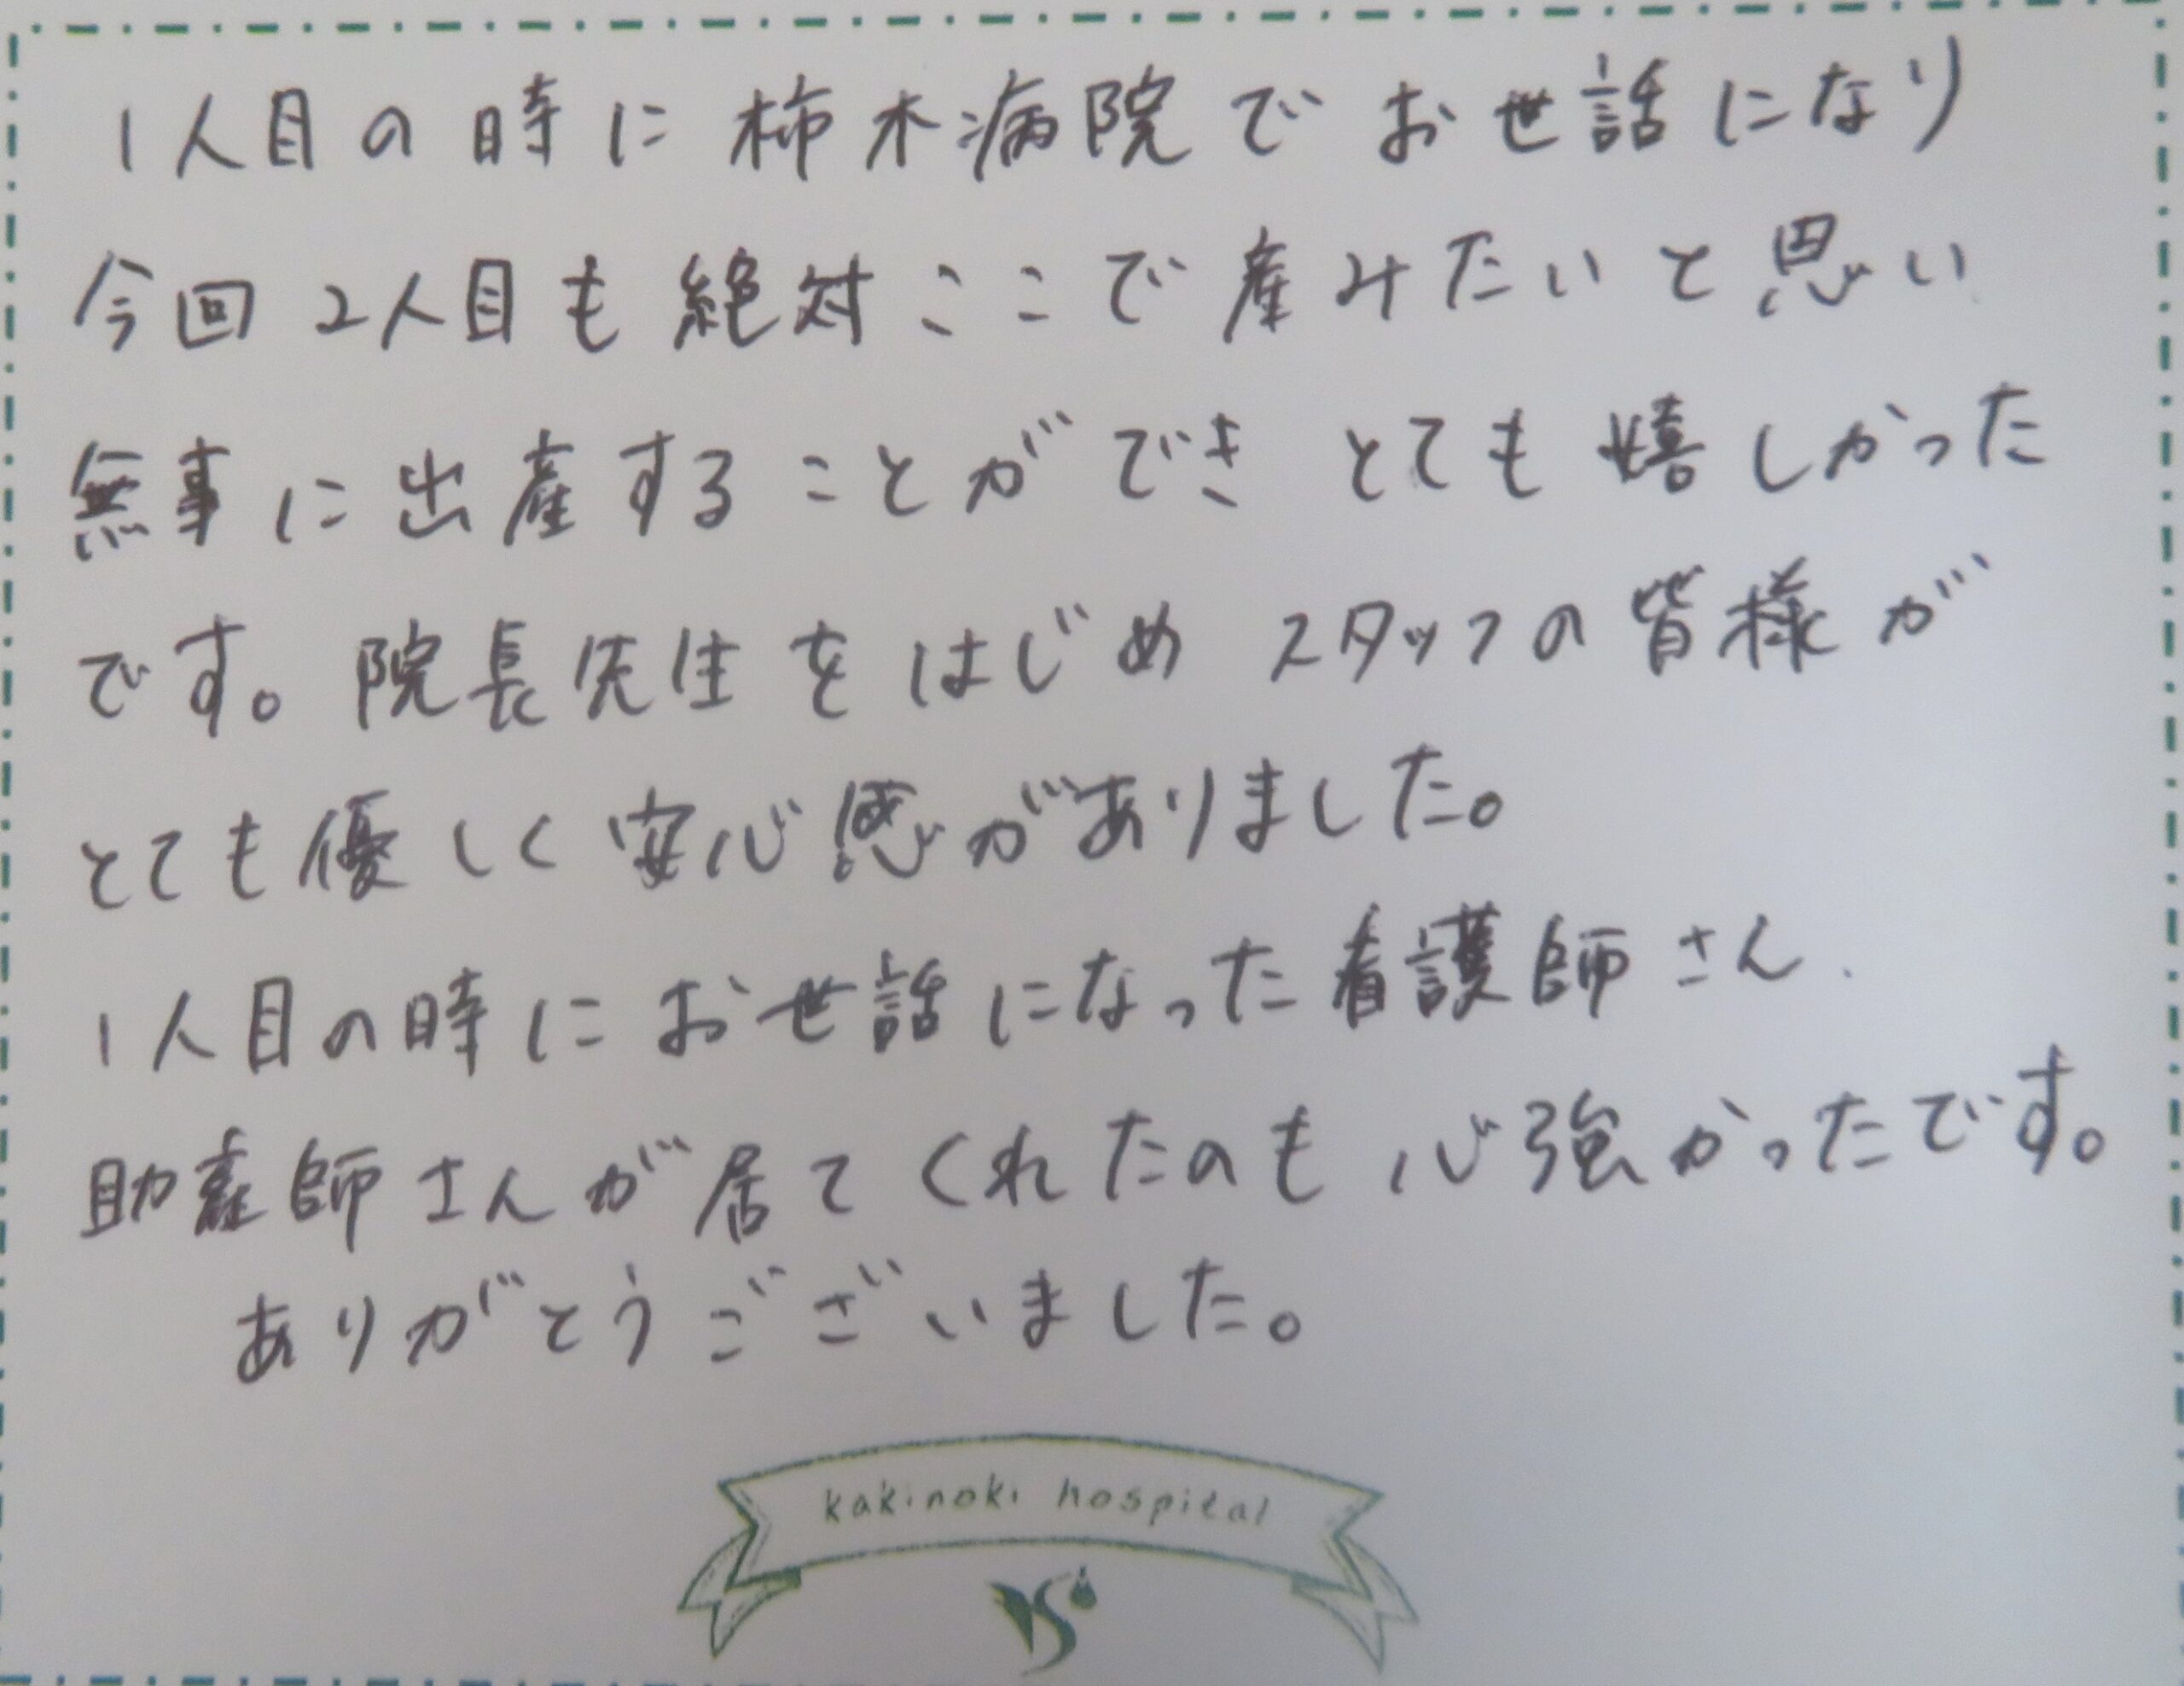 1人目の時に柿木病院でお世話になり
今回2人目も絶対ここで産みたいと思い
無事に出産することができ とても嬉しかった
です。院長先生をはじめ スタッフの皆様が
とても優しく安心感がありました。
1人目の時にお世話になった看護師さん、
助産師さんが居てくれたのも心強かったです。
ありがとうございました。
kakinoki hospital